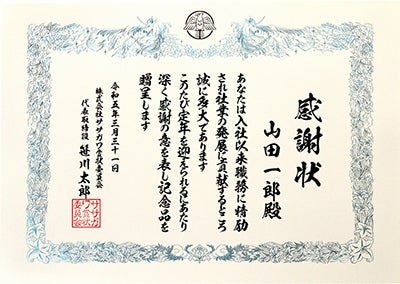 感謝状
山田一郎殿
あなたは入社以来職務に精励
され社業の発展に貢献するところ
誠に多大であります
このたび定年を迎えられるにあたり
深く感謝の意を表し記念品を
贈呈します
令和五年三月三十一日
株式会社ササガワ賞状委員会
代表取締役 笹川太郎
ササガワ賞状委員会